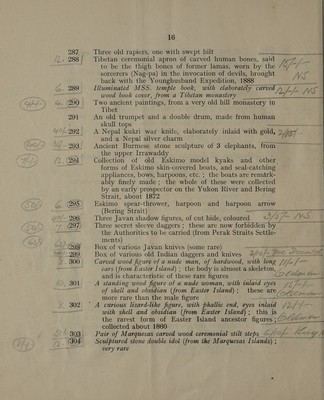 16
287 Three old rapiers, one with swept hilt
288 Tibetan ceremonial apron of carved human bones, said
to be the thigh bones of former lamas, worn by the
sorcerers (Nag-pa) in the invocation of devils, brought
back with the Younghusband Expedition, 1888
289 Illuminated MSS. temple book, with elaborately carved
wood book cover, from a Tibetan monastery
290 Two ancient paintings, from a very old hill monastery in
Tibet
291 An old trumpet and a double drum, made from human
skull tops
292 A Nepal kukri war knife, elaborately inlaid with gold,
and a Nepal silver charm
293 Ancient Burmese stone sculpture of 3 elephants, from
the upper Irrawaddy
294 Collection of old Eskimo model kyaks and other
forms of Eskimo skin-covered boats, and seal-catching
appliances, bows, harpoons, etc. ; the boats are remark-
ably finely made ; the whole of these were collected
by an early prospector on the Yukon River and Bering
Strait, about 1872
295 Eskimo spear-thrower, harpoon and harpoon arrow
(Bering Strait)
296 Three Javan shadow figures, of cut hide, coloured
297 Three secret sleeve daggers ; these are now forbidden by
the Authorities to be carried (from Perak Straits Settle-
ments)
298 Box of various Javan knives (some rare)
299 Box of various old Indian daggers and knives
300 Carved wood figure of a nude man, of hardwood, with long
ears (from Easter Island) ; the body is almost a skeleton,
and is characteristic of these rare figures
301 A standing wood figure of a nude woman, with inlaid eyes
of shell and obsidian (from Easter Island) ; these are
more rare than the male figure
302 A curious lizard-like figure, with phallic end, eyes inlaid
with shell and obsidian (from Easter Island) ; this is
the rarest form of Easter Island ancestor figures ;
collected about 1860
303 Pair of Marquesas carved wood ceremonial stilt steps
304 Sculptured stone double idol (from the Marquesas Islands) ;
very rare